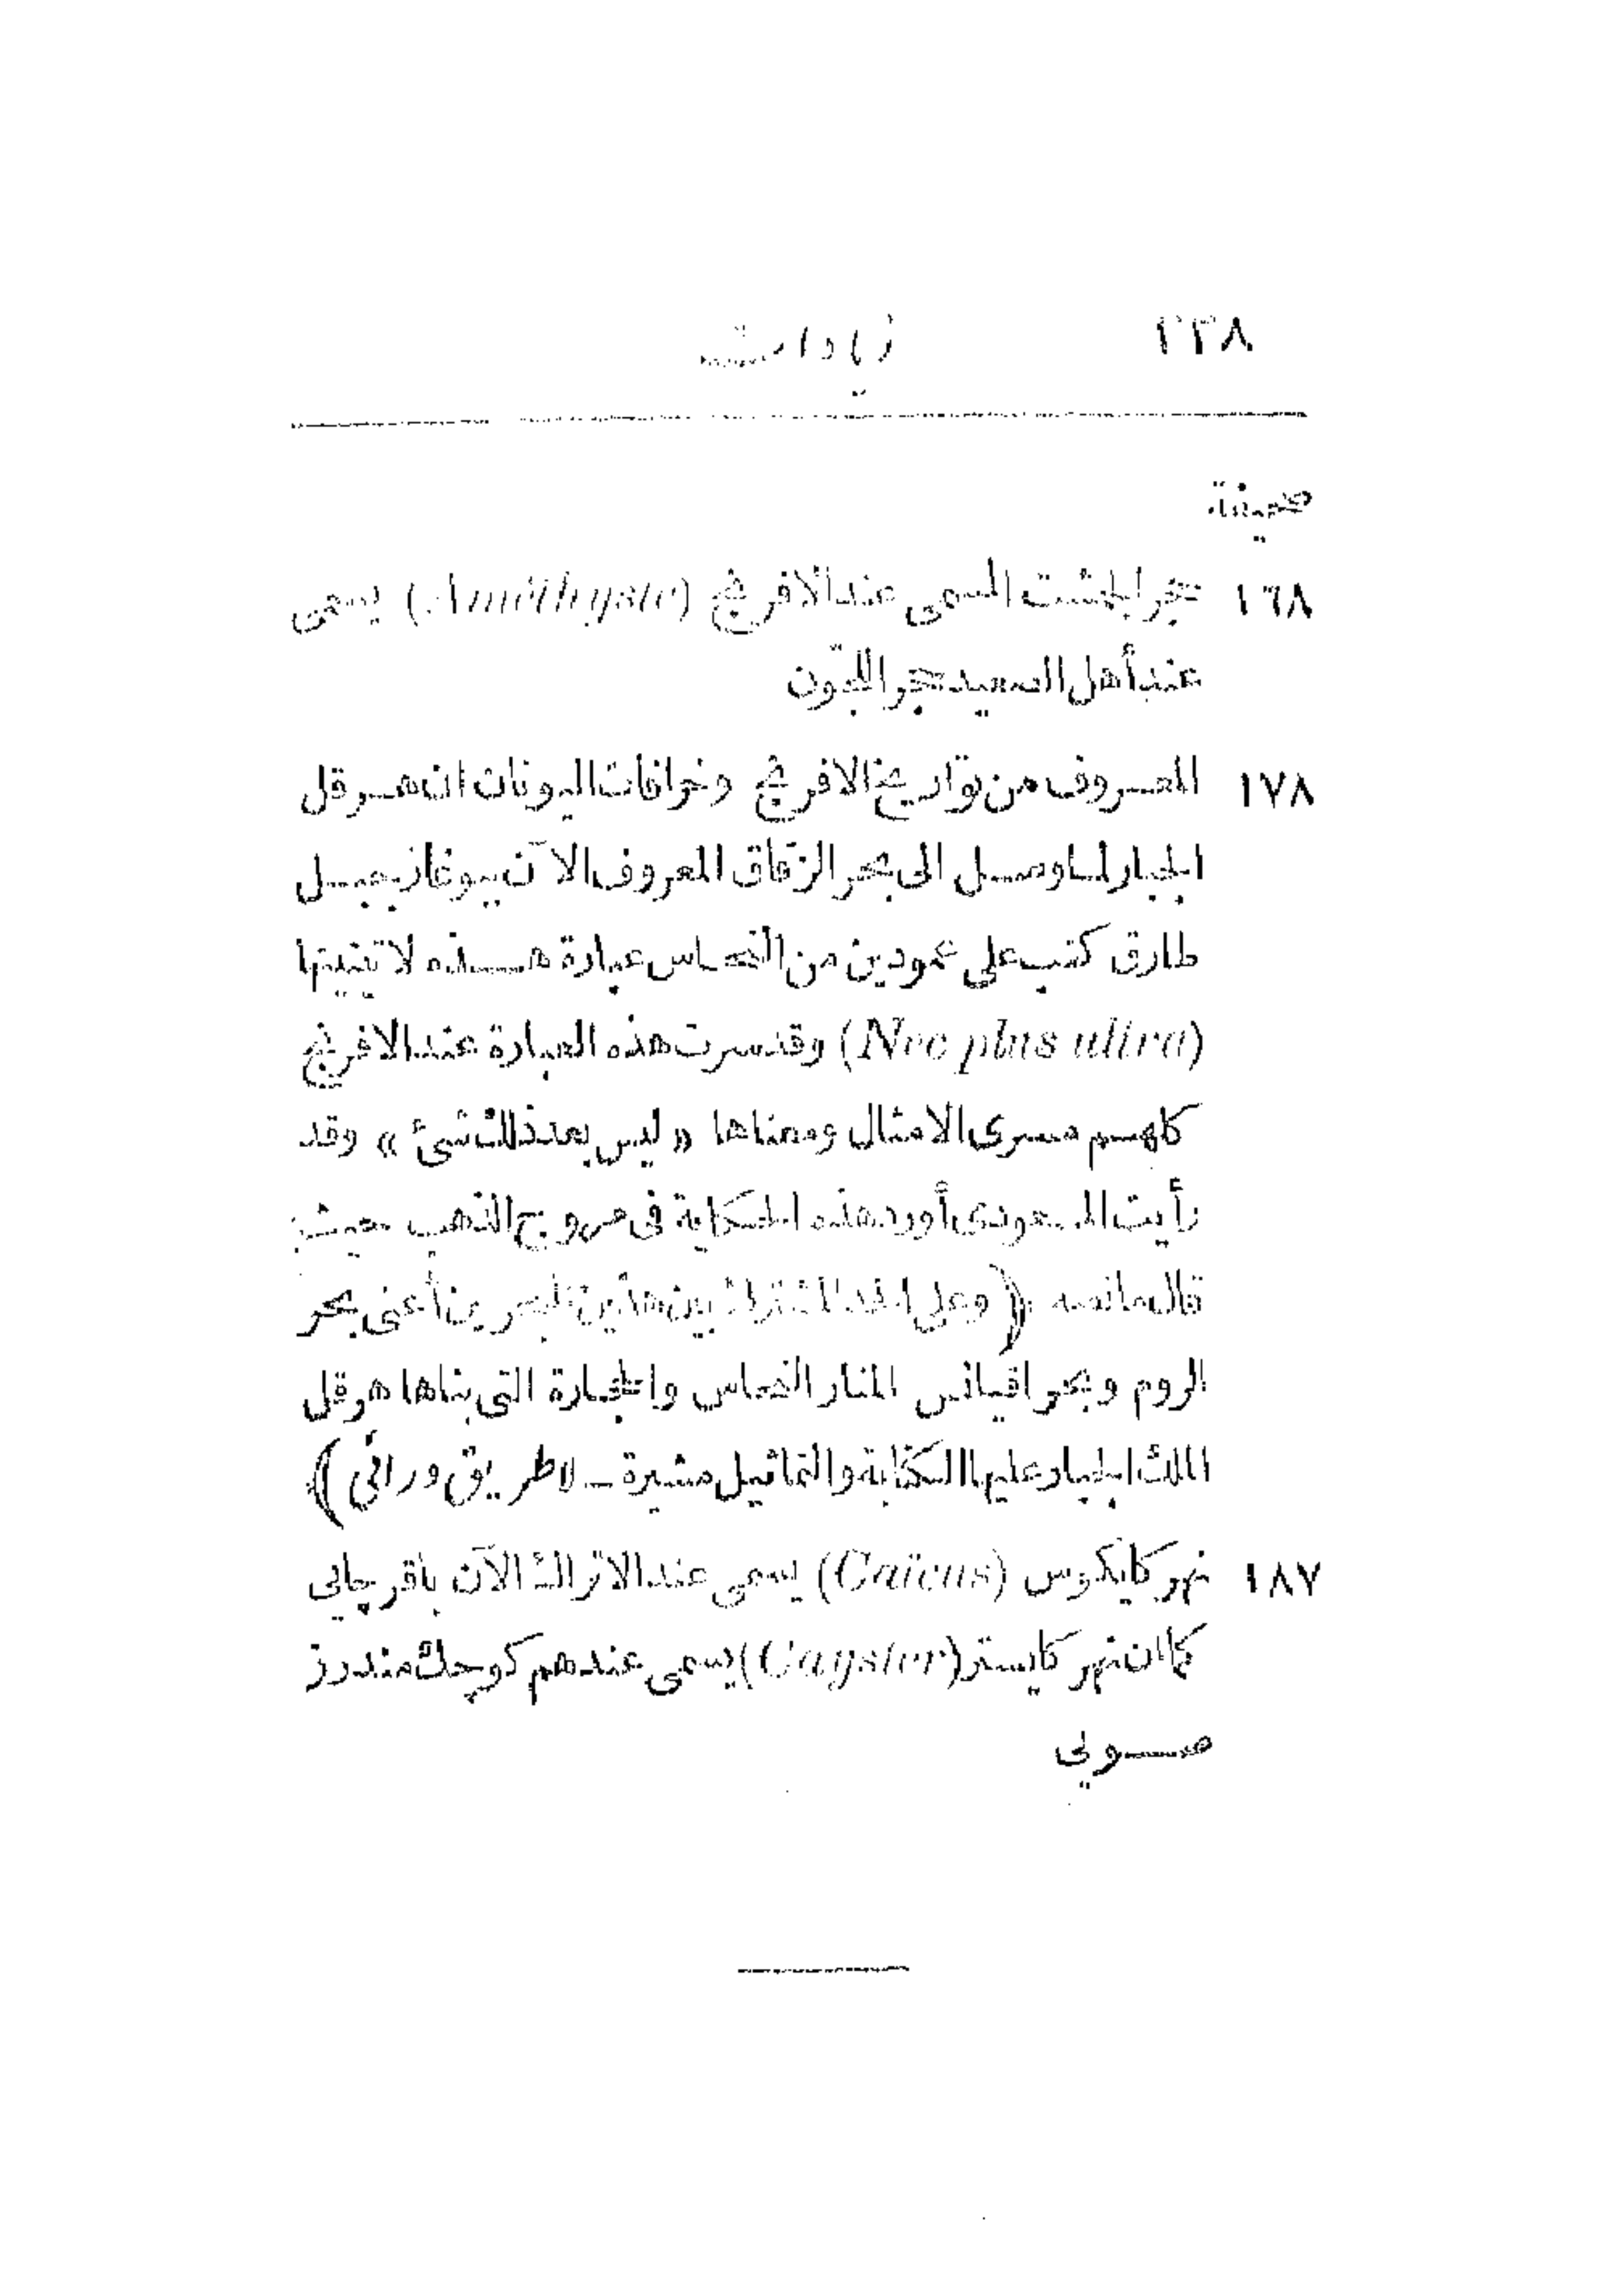 ٢٣٨ زيادات
صحيفة
١٦٨ حجر الجمشت المسمى عند الافرنج (Améthyste) يسمى
عند أهل الصعيد حجر اللجّون
١٧٨ المعروف من تواريخ الافرنج وخرافات اليونان ان هرقل
الجبار لما وصل الى بحر الزقاق المعروف الآن ببوغاز جبل
طارق كتب على عمودين من النحاس عبارة هذه لاتينيتها
(Nec plus ultra) وقد سرت هذه العبارة عند الافرنج
كلهم مسرى الامثال ومعناها «ليس بعد ذلك شئ» وقد
رأيت المسعودى أورد هذه الحكاية فى مروج الذهب حيث
قال ما نصه (وعلى الحد المشترك بين هذين البحرين أعنى بحر
الروم وبحر اقيانس المنار النحاس والحجارة التى بناها هرقل
الملك الجبار عليها الكتابة والتماثيل مشيرة ــ لا طريق ورائى)
١٨٧ نهر كايكوس (Caïcus) يسمى عند الاتراك الآن باقر چايى
كما ان نهر كايستر (Cayster) يسمى عندهم كوچك مندرز
صويى